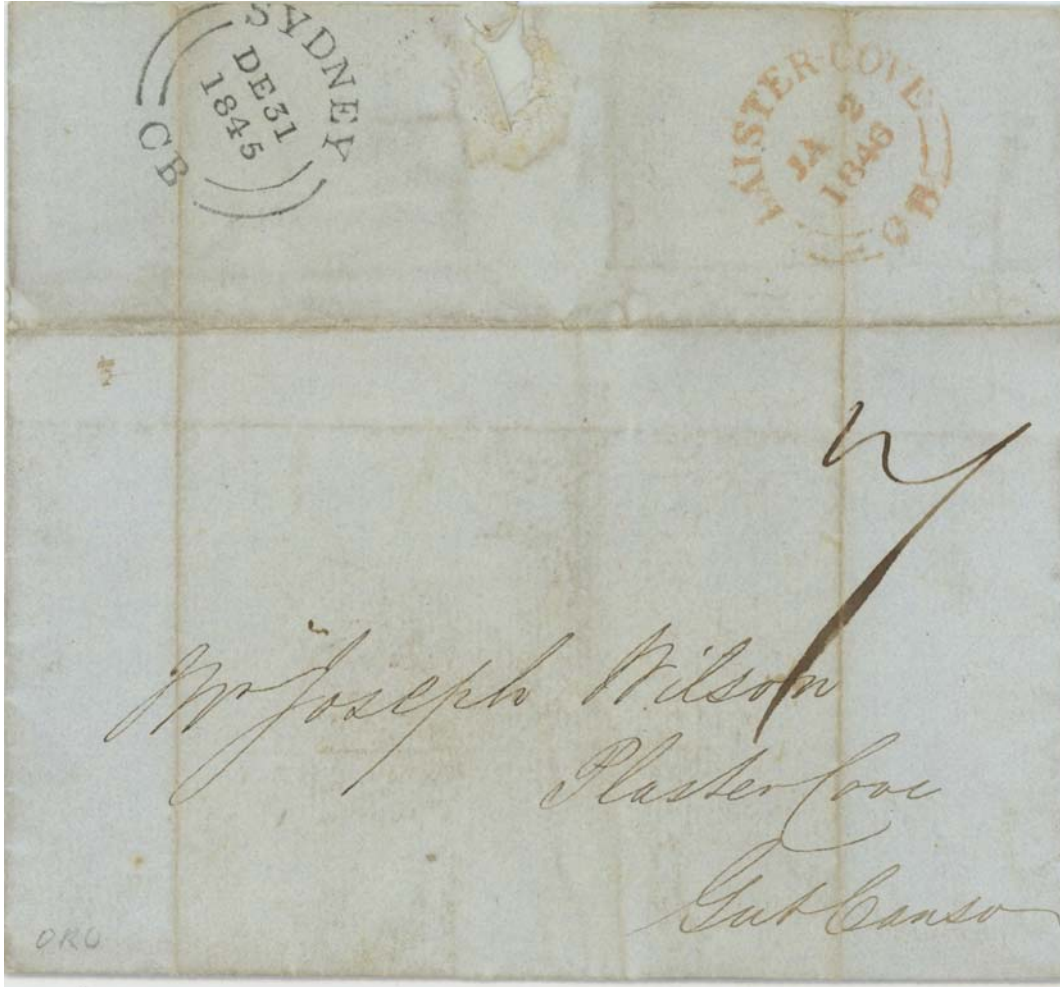 SYDNEY
DE31
1845
CB
PLAISTER COVE
JA 2
1846
CB
7
Mr Joseph Wilson
Plaster Cove
Gut Canso